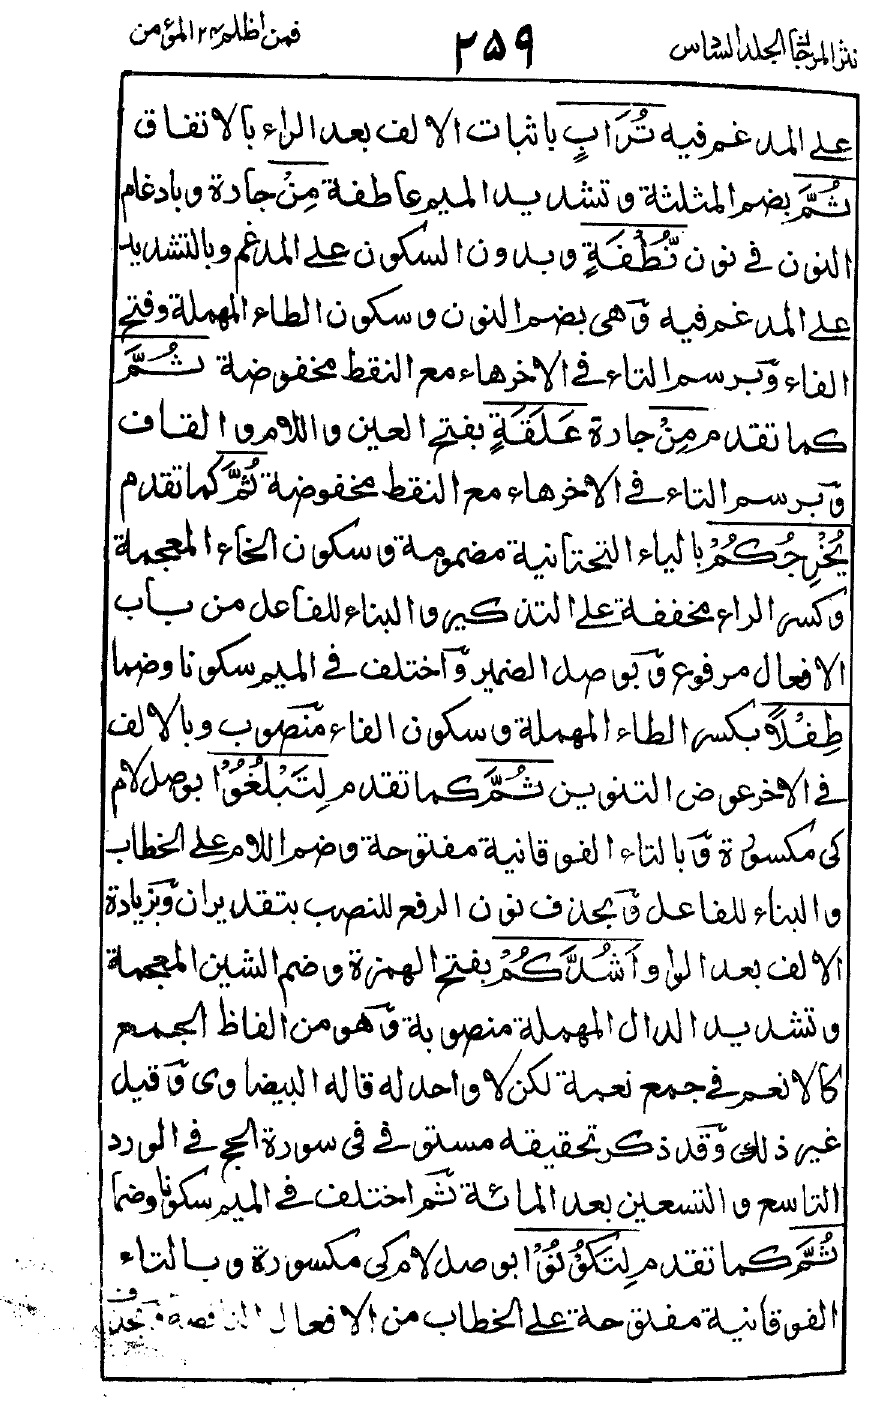 نثر المرجان الجلد السادس ٢٥٩ فمن اظلم ٢٤ المؤمن
على المدغم فيه تُرَابٍ باثبات الالف بعد الراء بالاتفاق
ثُمَّ بضم المثلثة وتشديد الميم عاطفة مِنْ جارة وبادغام
النون في نون نُّطْفَةٍ وبدون السكون على المدغم وبالتشديد
على المدغم فيه وهى بضم النون وسكون الطاء المهملة وفتح
الفاء وبرسم التاء في الاخر هاء مع النقط مخفوضة ثُمَّ
كما تقدم مِنْ جارة عَلَقَةٍ بفتح العين واللام والقاف
وبرسم التاء في الاخر هاء مع النقط مخفوضة ثُمَّ كما تقدم
يُخْرِجُكُمْ بالياء التحتانية مضمومة وسكون الخاء المعجمة
وكسر الراء مخففة على التذكير والبناء للفاعل من باب
الافعال مرفوع وبوصل الضمير واختلف في الميم سكونا وضما
طِفْلًا بكسر الطاء المهملة وسكون الفاء منصوب وبالالف
في الاخر عوض التنوين ثُمَّ كما تقدم لِتَبْلُغُوْا بوصل لام
كى مكسورة وبالتاء الفوقانية مفتوحة وضم اللام على الخطاب
والبناء للفاعل وبحذف نون الرفع للنصب بتقدير ان وبزيادة
الالف بعد الواو اَشُدَّكُمْ بفتح الهمزة وضم الشين المعجمة
وتشديد الدال المهملة منصوبة وهو من الفاظ الجمع
كالانعم في جمع نعمة لكن لا واحد له قاله البيضاوى وقيل
غير ذلك وقد ذكر تحقيقه مستوفى فى سورة الحج في الورد
التاسع والتسعين بعد المائة ثم اختلف في الميم سكونا وضما
ثُمَّ كما تقدم لِتَكُوْنُوْا بوصل لام كى مكسورة وبالتاء
الفوقانية مفتوحة على الخطاب من الافعال الناقصة وبحذف